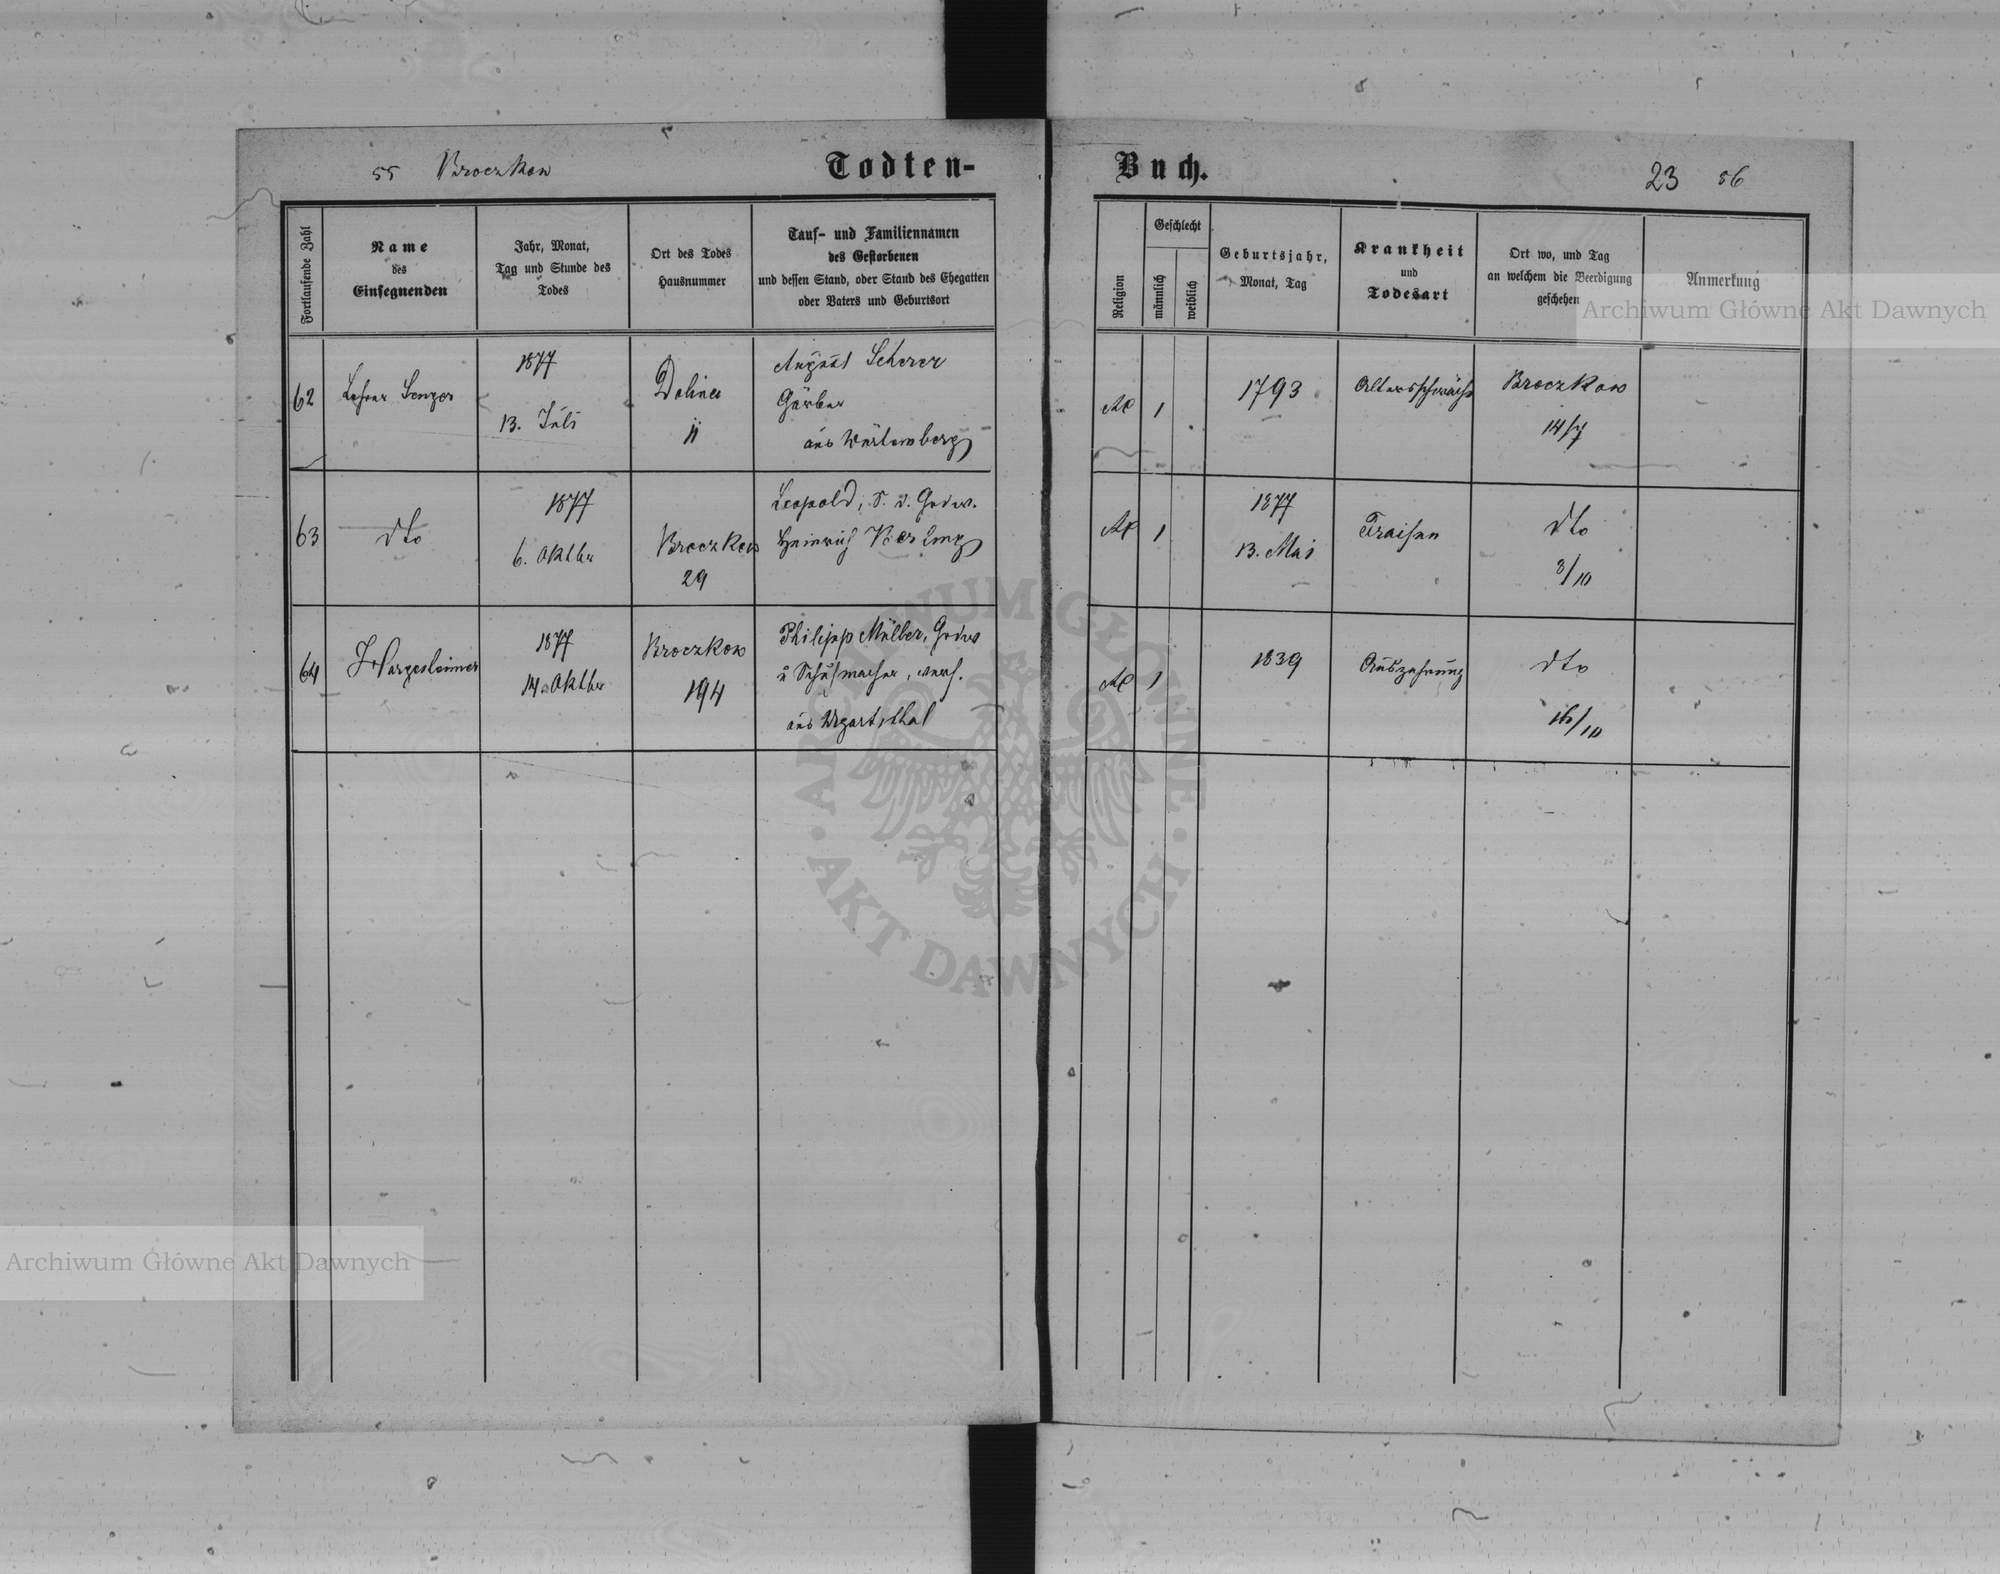 55 Broczkow
Todten-
Buch.
23 56
Fortlaufende Zahl
Name
des
Einsegnenden
Jahr, Monat,
Tag und Stunde des
Todes
Ort des Todes
Hausnummer
Tauf- und Familiennamen
des Gestorbenen
und dessen Stand, oder Stand des Ehegatten
oder Vaters und Geburtsort
Religion
Geschlecht
männlich
weiblich
Geburtsjahr,
Monat, Tag
Krankheit
und
Todesart
Ort wo, und Tag
an welchem die Beerdigung
geschehen
Anmerkung
62
Lehrer
1877
13. Juli
Dolina
11
August Scherer
Gärber
aus Würtemberg
1
1793
Altersschwäche
Broczkow
14/7
63
dto
1877
6. Oktbr
Broczkow
29
Leopold, S. d. Grdw.
Heinrich
1
1877
13. Mai
Fraisen
dto
8/10
64
J Hargesheimer
1877
14. Oktbr
Broczkow
194
Philipp Müller, Grdw
u Schuhmacher, verh.
aus Ugartsthal
1
1839
Auszehrung
dto
16/10
Archiwum Główne Akt Dawnych
ARCHIWUM GŁÓWNE
AKT DAWNYCH
Archiwum Główne Akt Dawnych